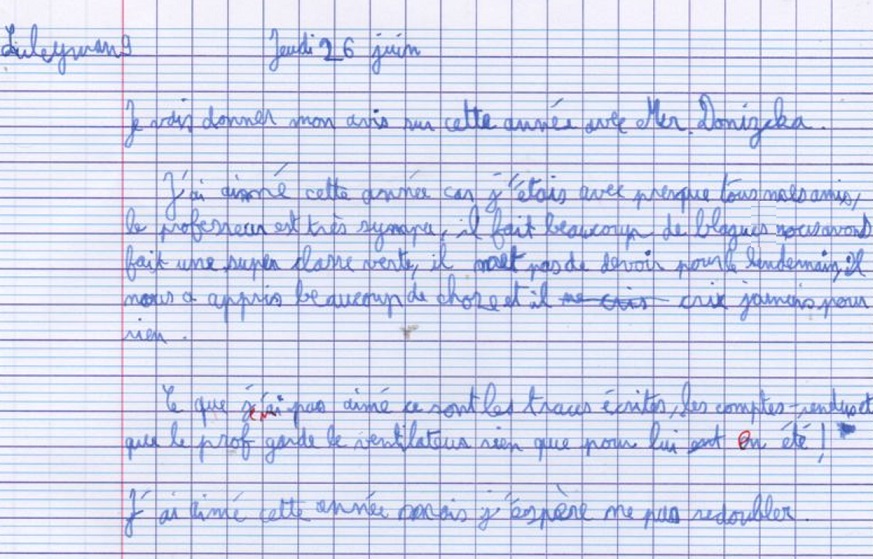 Suleyman Jeudi 26 juin
Je vais donner mon avis sur cette année avec Mr. Donizeka.
J'ai aimé cette année car j'étais avec presque tous mes amis,
le professeur est très sympa, il fait beaucoup de blagues nous avons
fait une super classe verte, il met pas de devoir pour le lendemain, il
nous a appris beaucoup de choze et il ne cris crix jamais pour
rien.
Ce que je n'ai pas aimé ce sont les traces écrites, les comptes-rendus et
que le prof garde le ventilateur rien que pour lui en été !
J'ai aimé cette année mais j'espère ne pas redoubler.